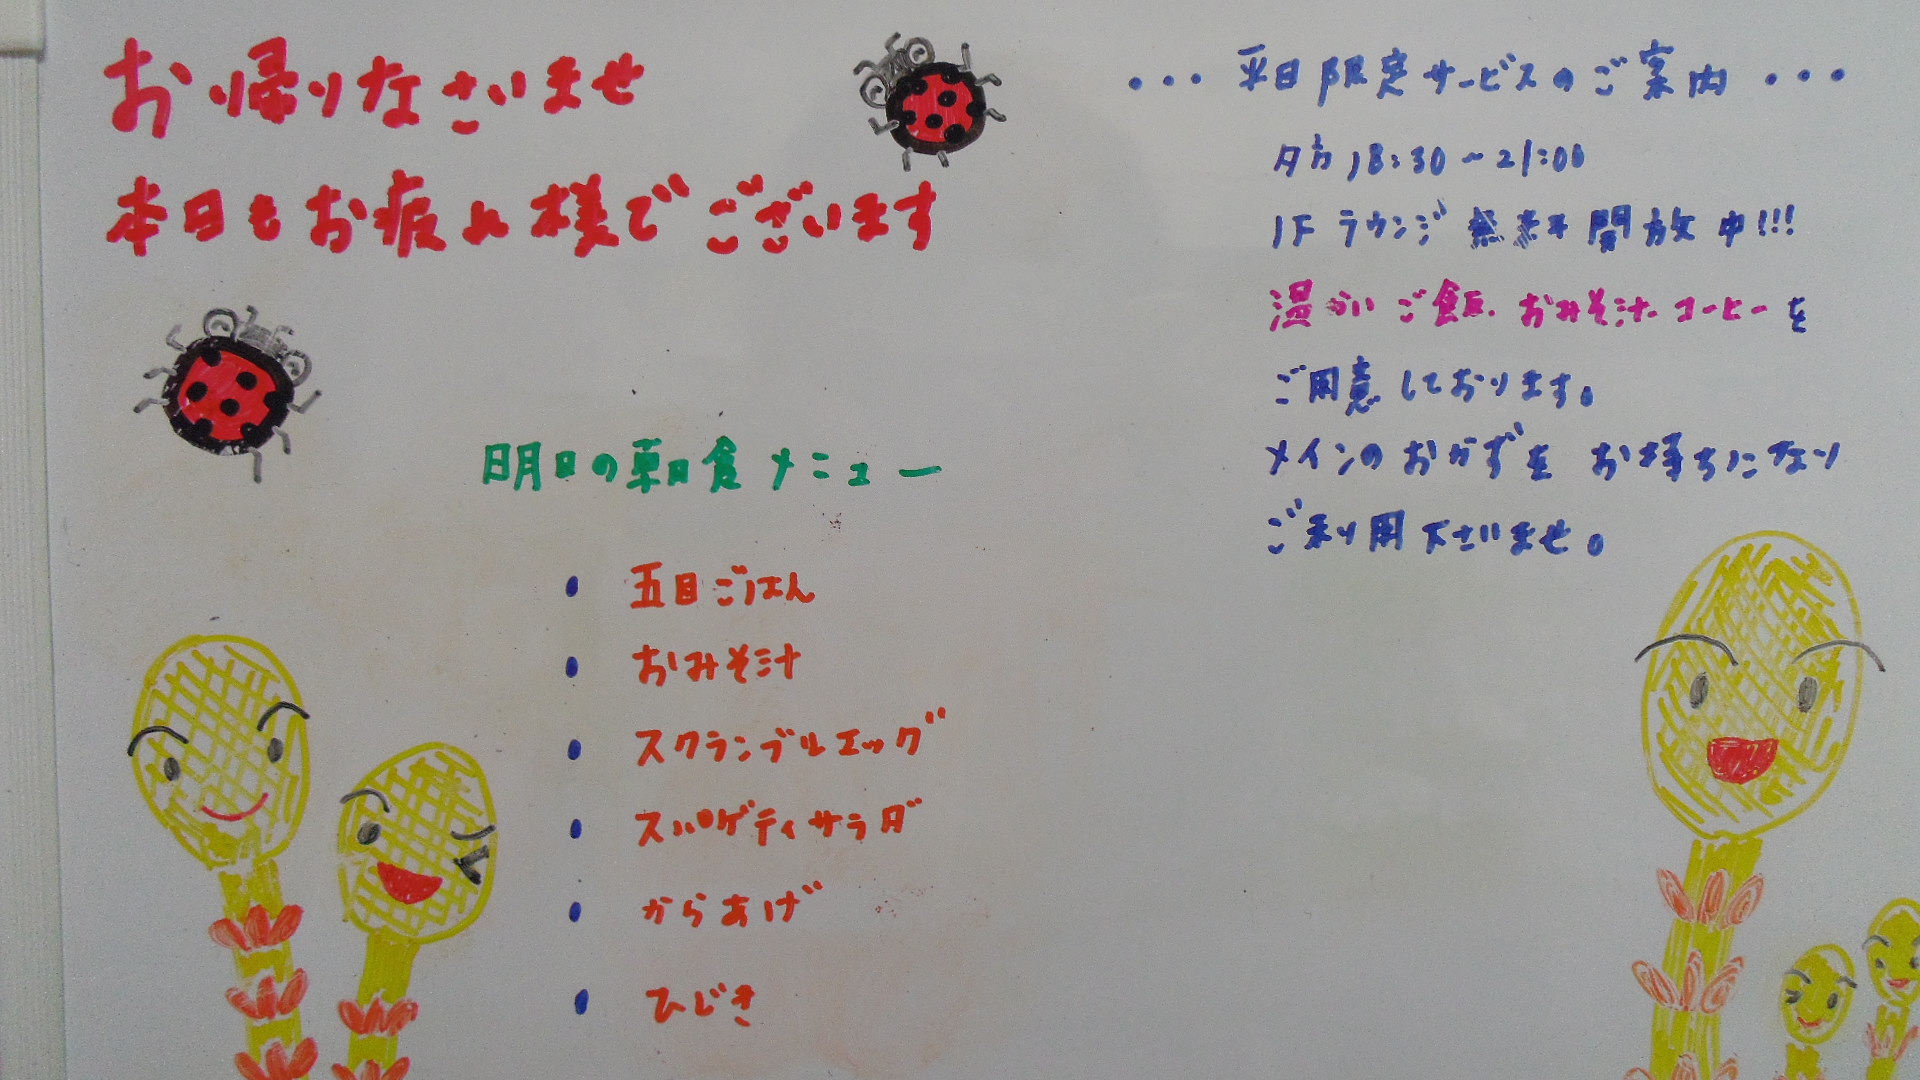 お帰りなさいませ
本日もお疲れ様でございます
明日の朝食メニュー
• 五目ごはん
• おみそ汁
• スクランブルエッグ
• スパゲティサラダ
• からあげ
• ひじき
・・・平日限定サービスのご案内・・・
夕方18:30~21:00
1Fラウンジ無料開放中!!!
温かいご飯、おみそ汁、コーヒーを
ご用意しております。
メインのおかずをお持ちになり
ご利用下さいませ。